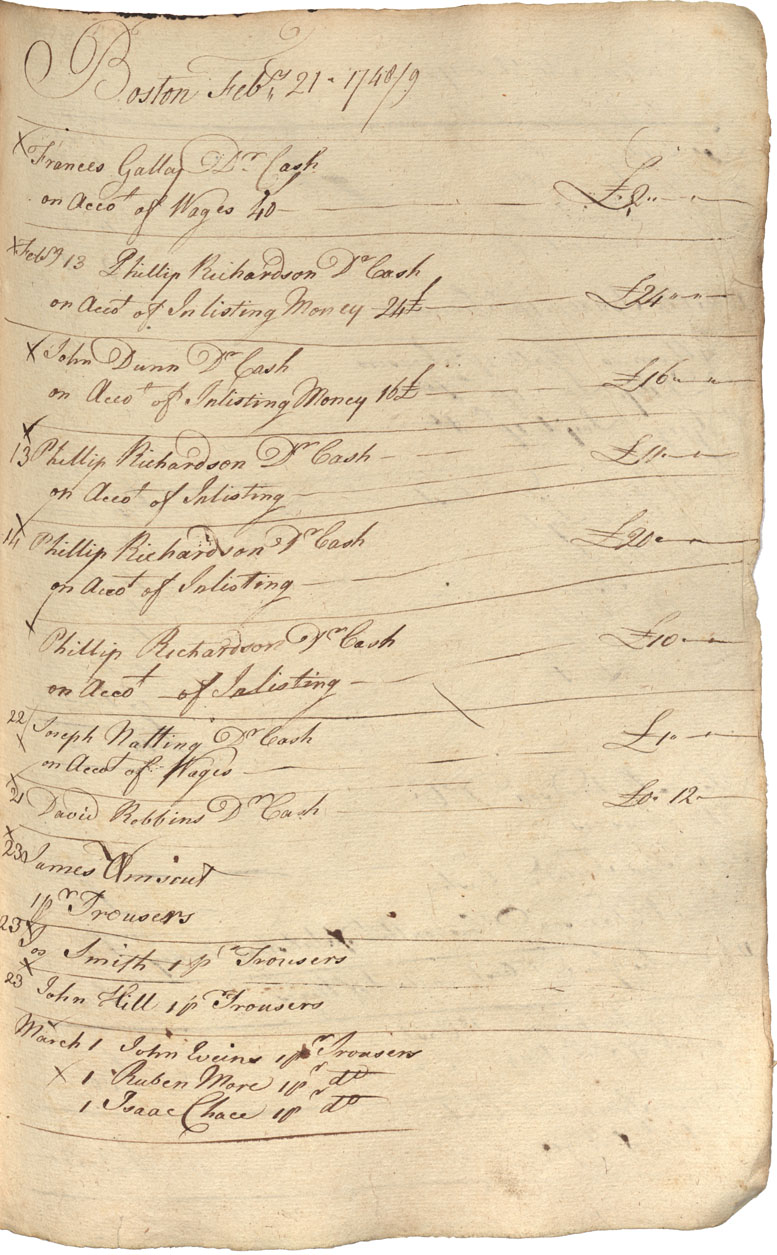 Boston Febry 21 1748/9
X Frances Gallay Dr Cash
on Accot of Wages 40 — £2 " — "
X Febry 13 Phillip Richardson Dr Cash
on Accot of Inlisting Money 24£ — £24 " — "
X John Dunn Dr Cash
on Accot of Inlisting Money 16£ — £16 " — "
X
13 Phillip Richardson Dr Cash —
on Accot of Inlisting —
X
14 Phillip Richardson Dr Cash £20 " — "
on Accot of Inlisting —
X
Phillip Richardson Dr Cash £10 " — "
on Accot of Inlisting —
22 Joseph Natting Dr Cash £1 " — "
X on Accot of Wages —
X
21 David Robbins Dr Cash — £0 " 12 " —
X
23 James
1 pr Trousers
23 X Jos Smith 1 pr Trousers
X
23 John Hill 1 pr Trousers
March 1 John 1 pr Trousers
X 1 Ruben More 1 pr do
1 Isaac Chace 1 pr do